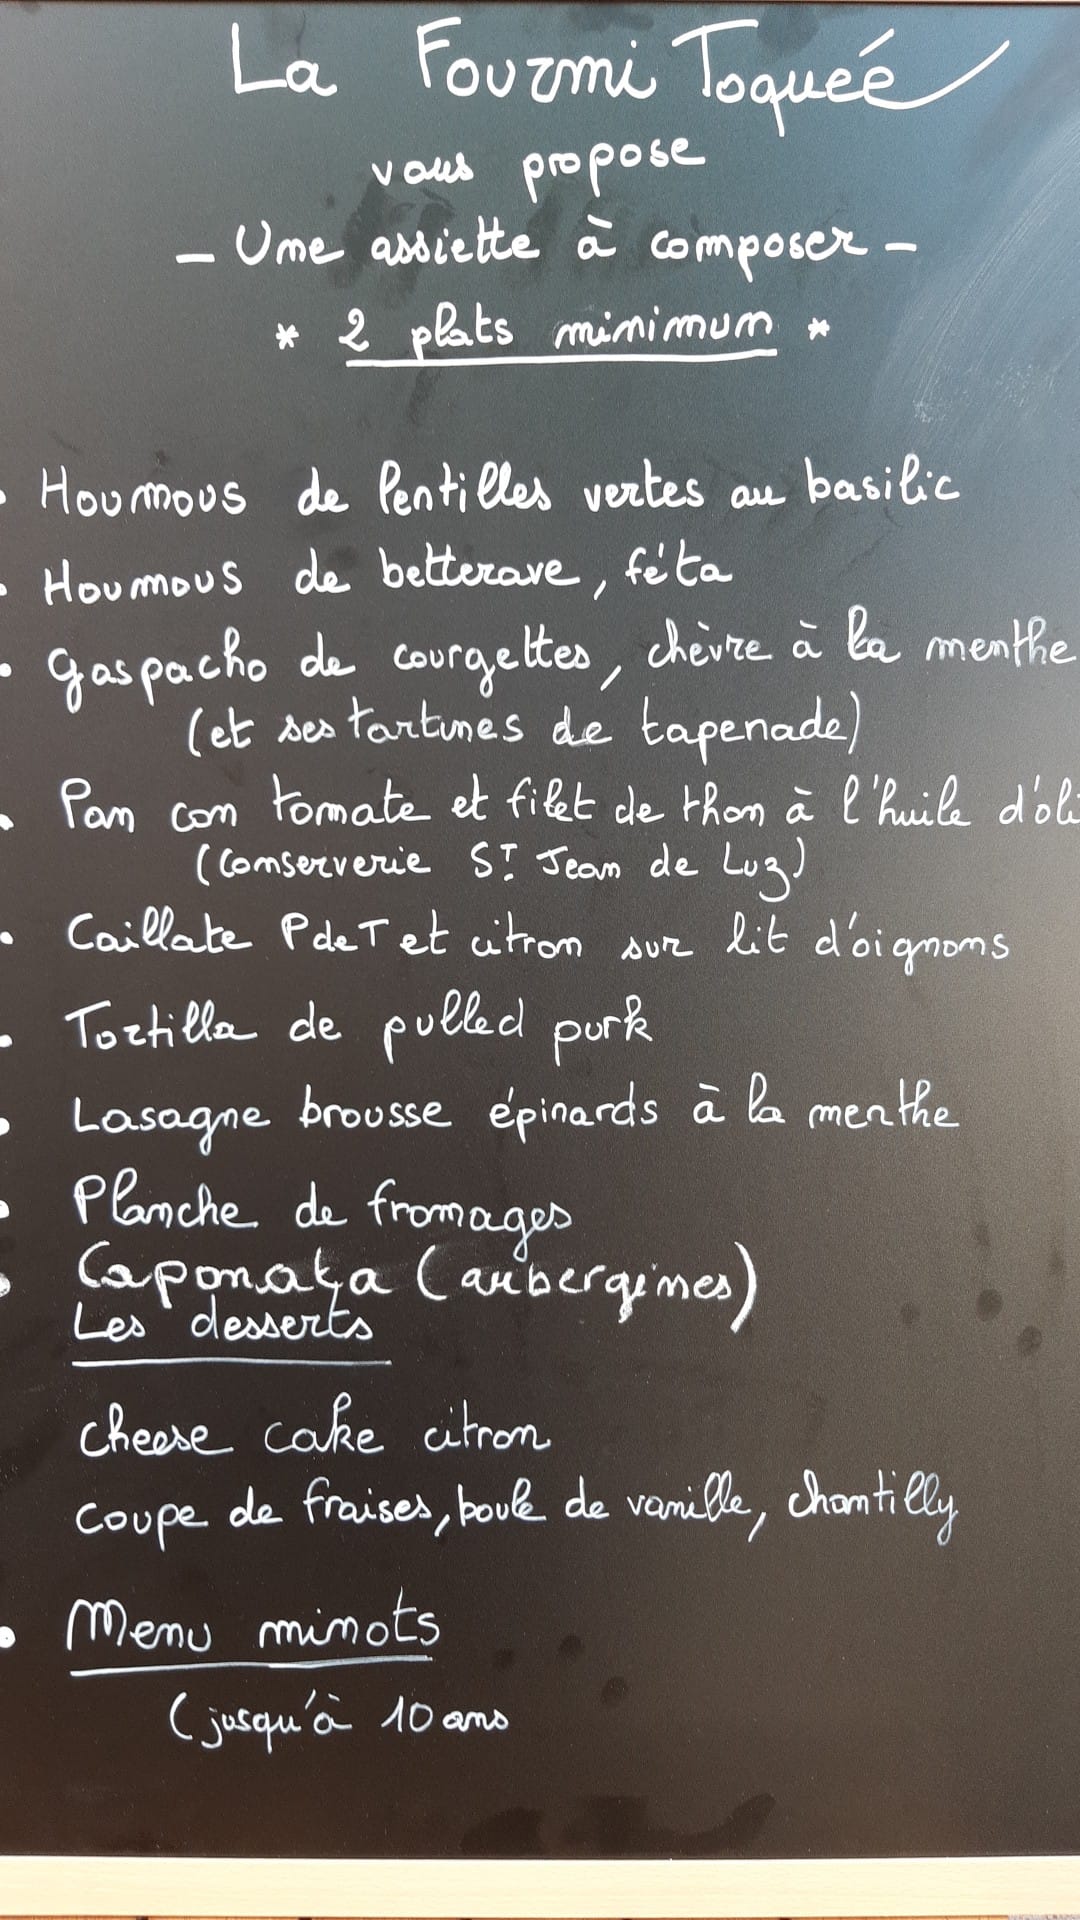 La Fourmi Toquéé
vous propose
- Une assiette à composer -
* 2 plats minimum *
• Houmous de lentilles vertes au basilic
• Houmous de betterave, féta
• gaspacho de courgettes, chèvre à la menthe
(et ses tartines de tapenade)
• Pan con tomate et filet de thon à l'huile d'oli
(Conserverie St Jean de Luz)
• Caillate PdeT et citron sur lit d'oignons
• Tortilla de pulled purk
• Lasagne brousse épinards à la menthe
• Planche de fromages
• Caponata (aubergines)
Les desserts
cheese cake citron
coupe de fraises, boule de vanille, chantilly
• Menu minots
(jusqu'à 10 ans